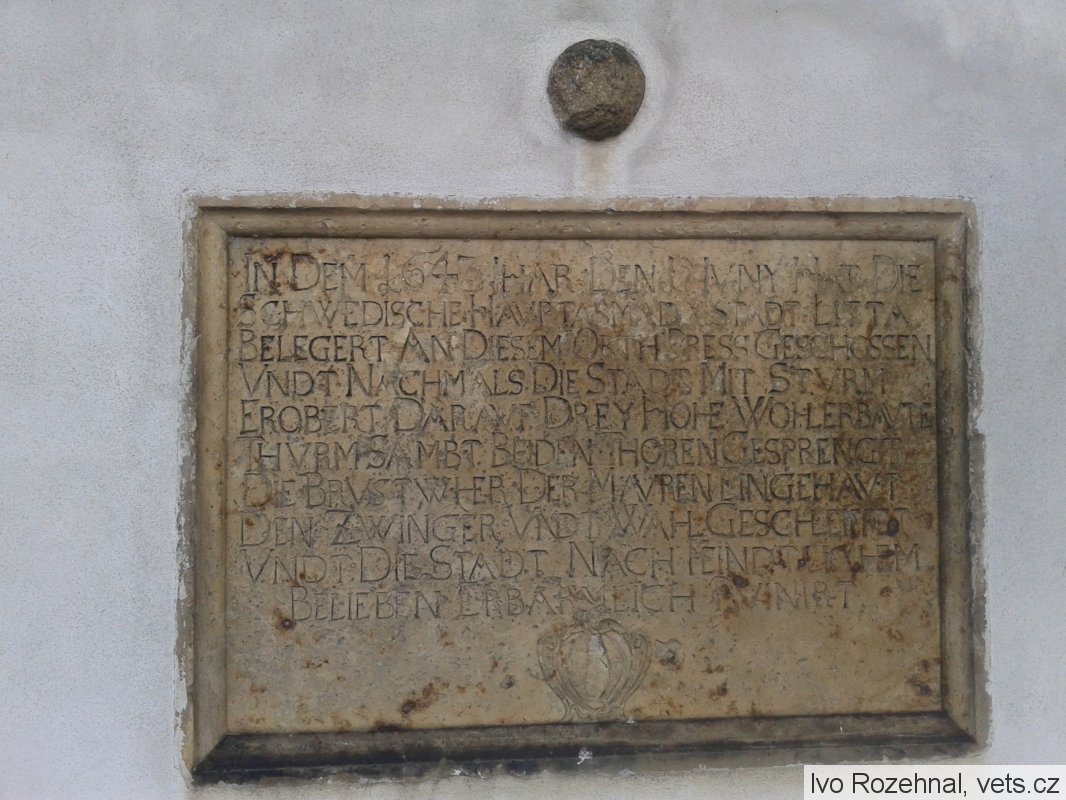 IN DEM 1643 IHAR DEN IVNY HAT DIE
SCHWEDISCHE HAVPTARMADA STADT LITTA
BELEGERT AN DIESEM ORTH PRESS GESCHOSSEN
VNDT NACHMALS DIE STADT MIT STVRM
EROBERT DARAVF DREY HOHE WOHLERBAVTE
THVRM SAMBT BEIDEN THOREN GESPRENGT
DIE BRVSTWHER DER MAVREN EINGEHAVT
DEN ZWINGER VNDT WAHL GESCHLEIFFT
VNDT DIE STADT NACH FEINDTLICHEM
BELIEBEN ERBARMLICH RVINIRT
Ivo Rozehnal, vets.cz